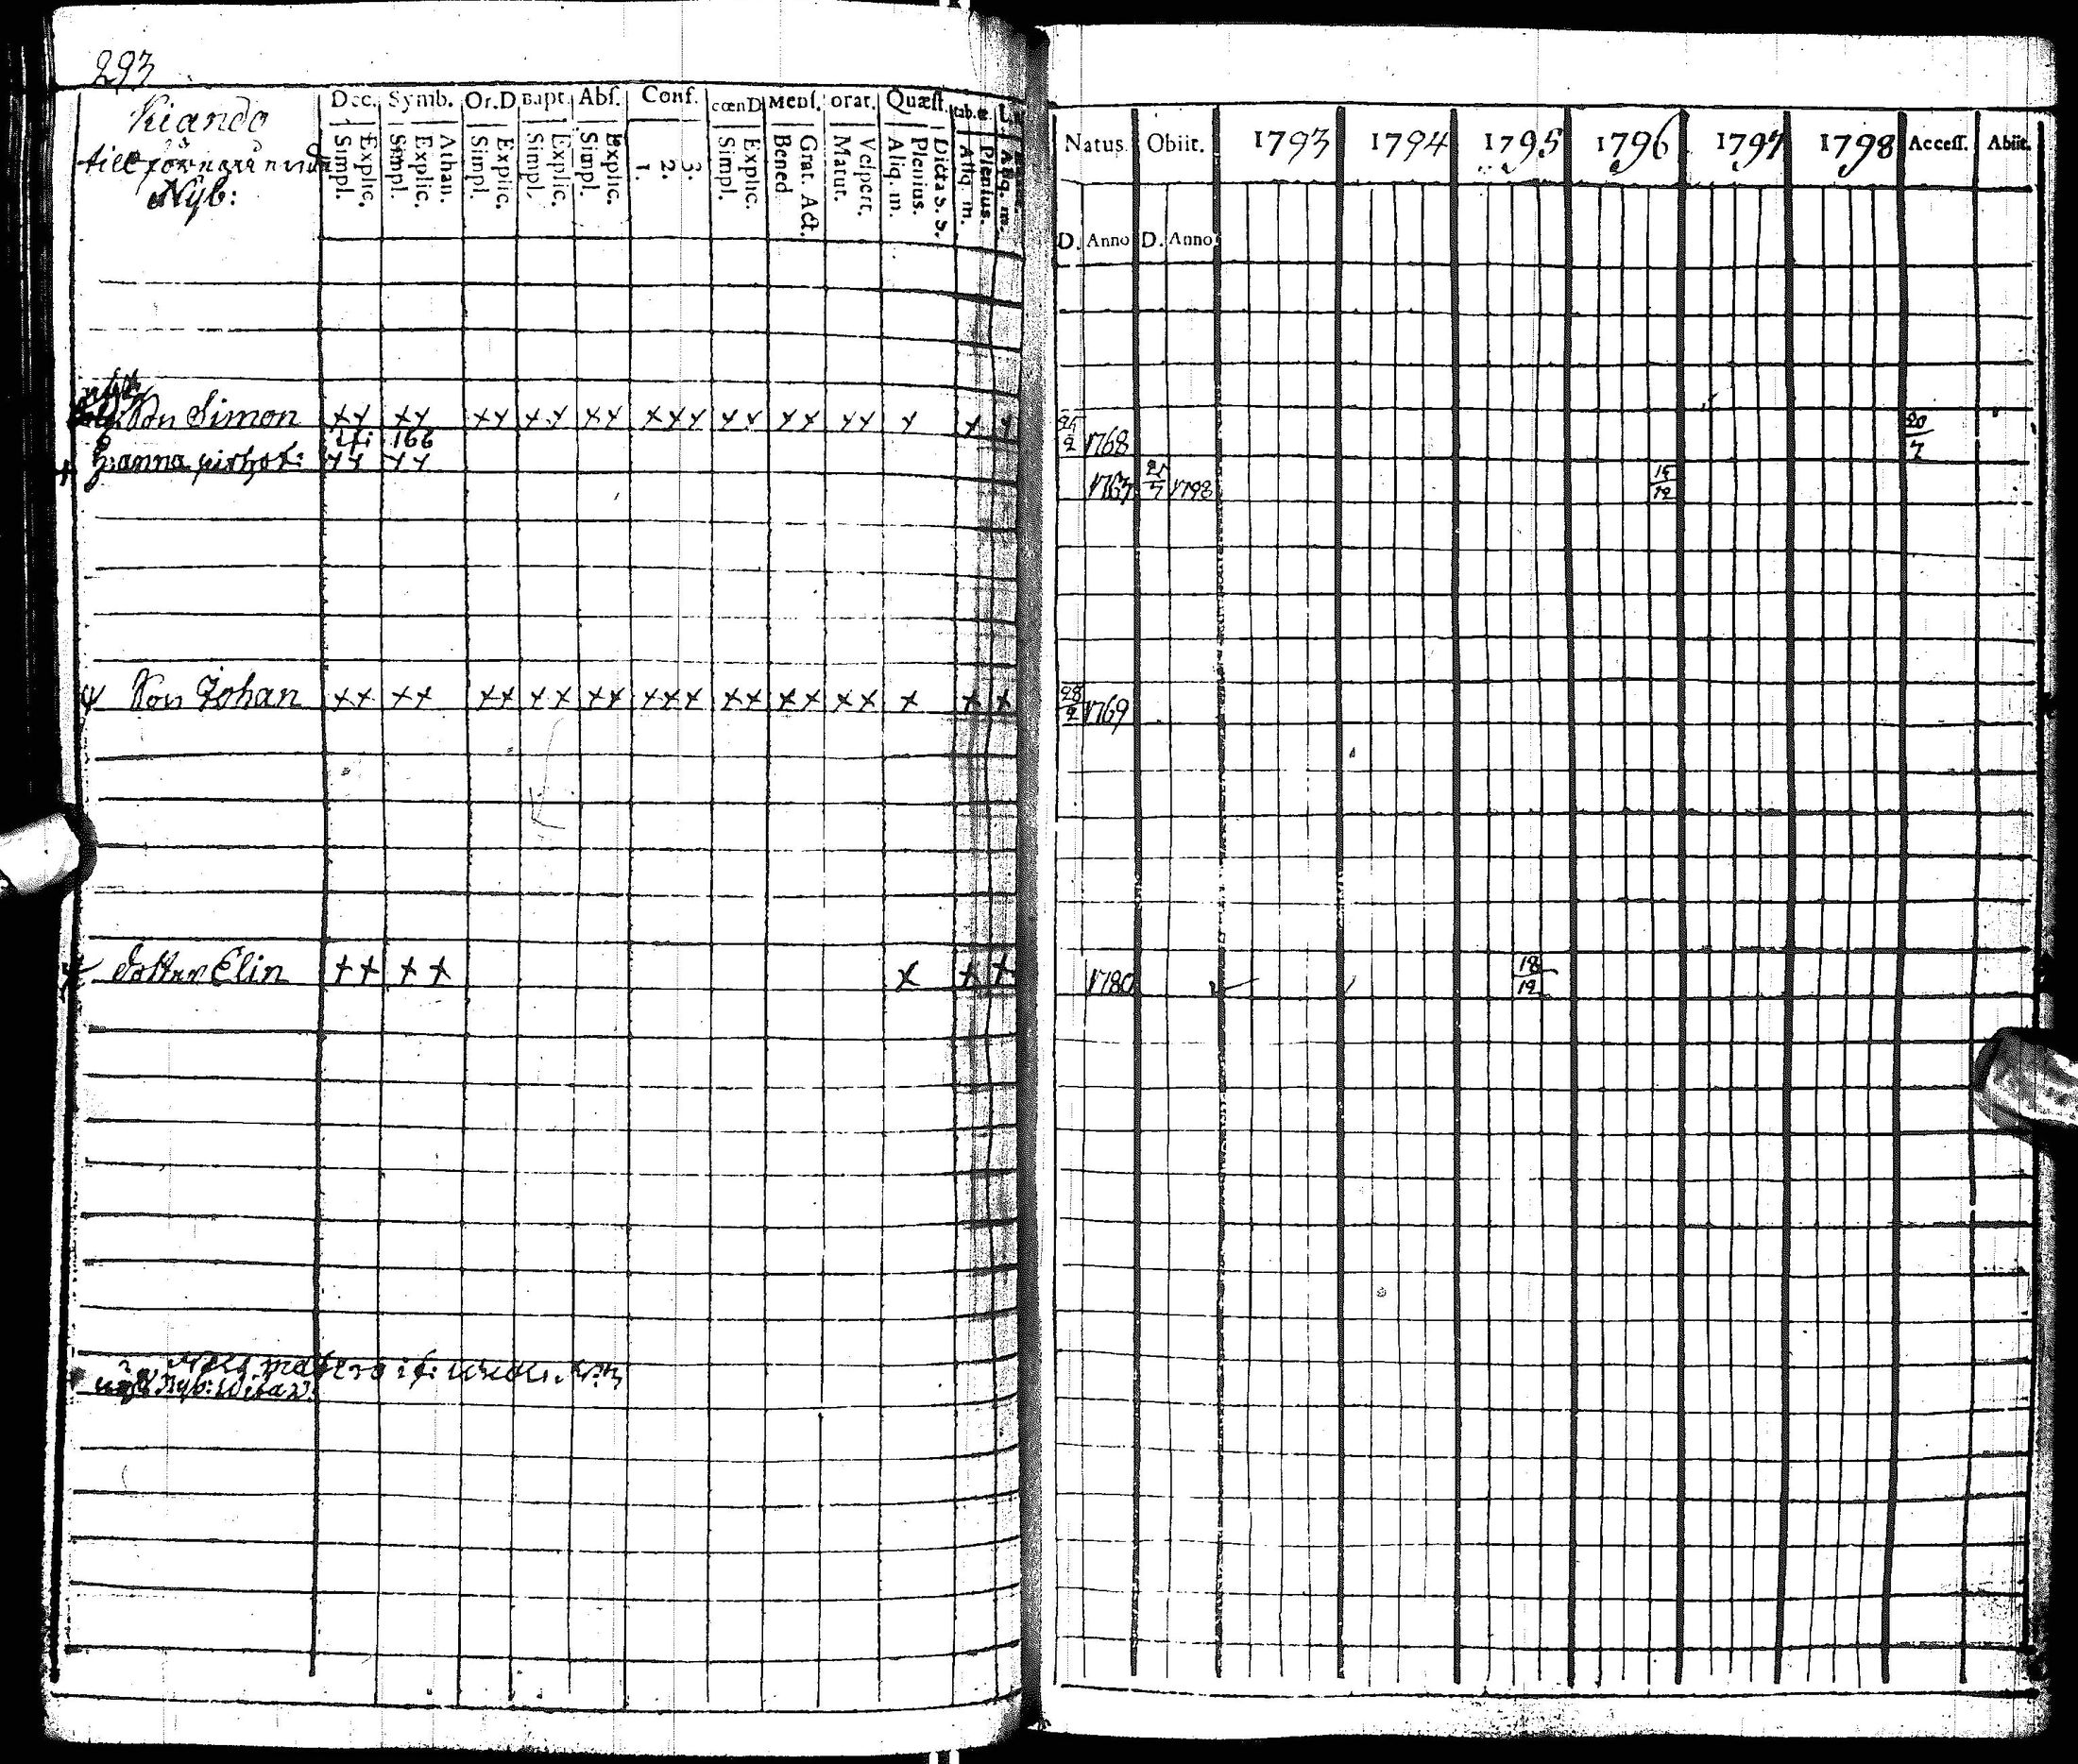 293
Kiando
Nyb:
Dec. Symb. Or.D Bapt. Abs. Conf. cœnD Mens. orat. Quæst. tab.œ.
Simpl. Explic. Simpl. Explic. Athan. Simpl. Explic. Simpl. Explic. Simpl. Explic. 1. 2. 3. Simpl. Explic. Bened. Grat. Act. Matut. Vespert. Aliq. m. Plenius. Dicta S. S. Aliq. m. Plenius. Aliq. m.
Natus. Obiit. 1793 1794 1795 1796 1797 1798 Access. Abiit.
D. Anno D. Anno
Son Simon xx xx xx xx xx xxx xx xx xx x x x 1768 20/7
166
xx xx 1763 1798 15/12
Son Johan xx xx xx xx xx xxx xx xx xx x x x 28/2 1769
dotter Elin xx xx x x x 1780 18/12